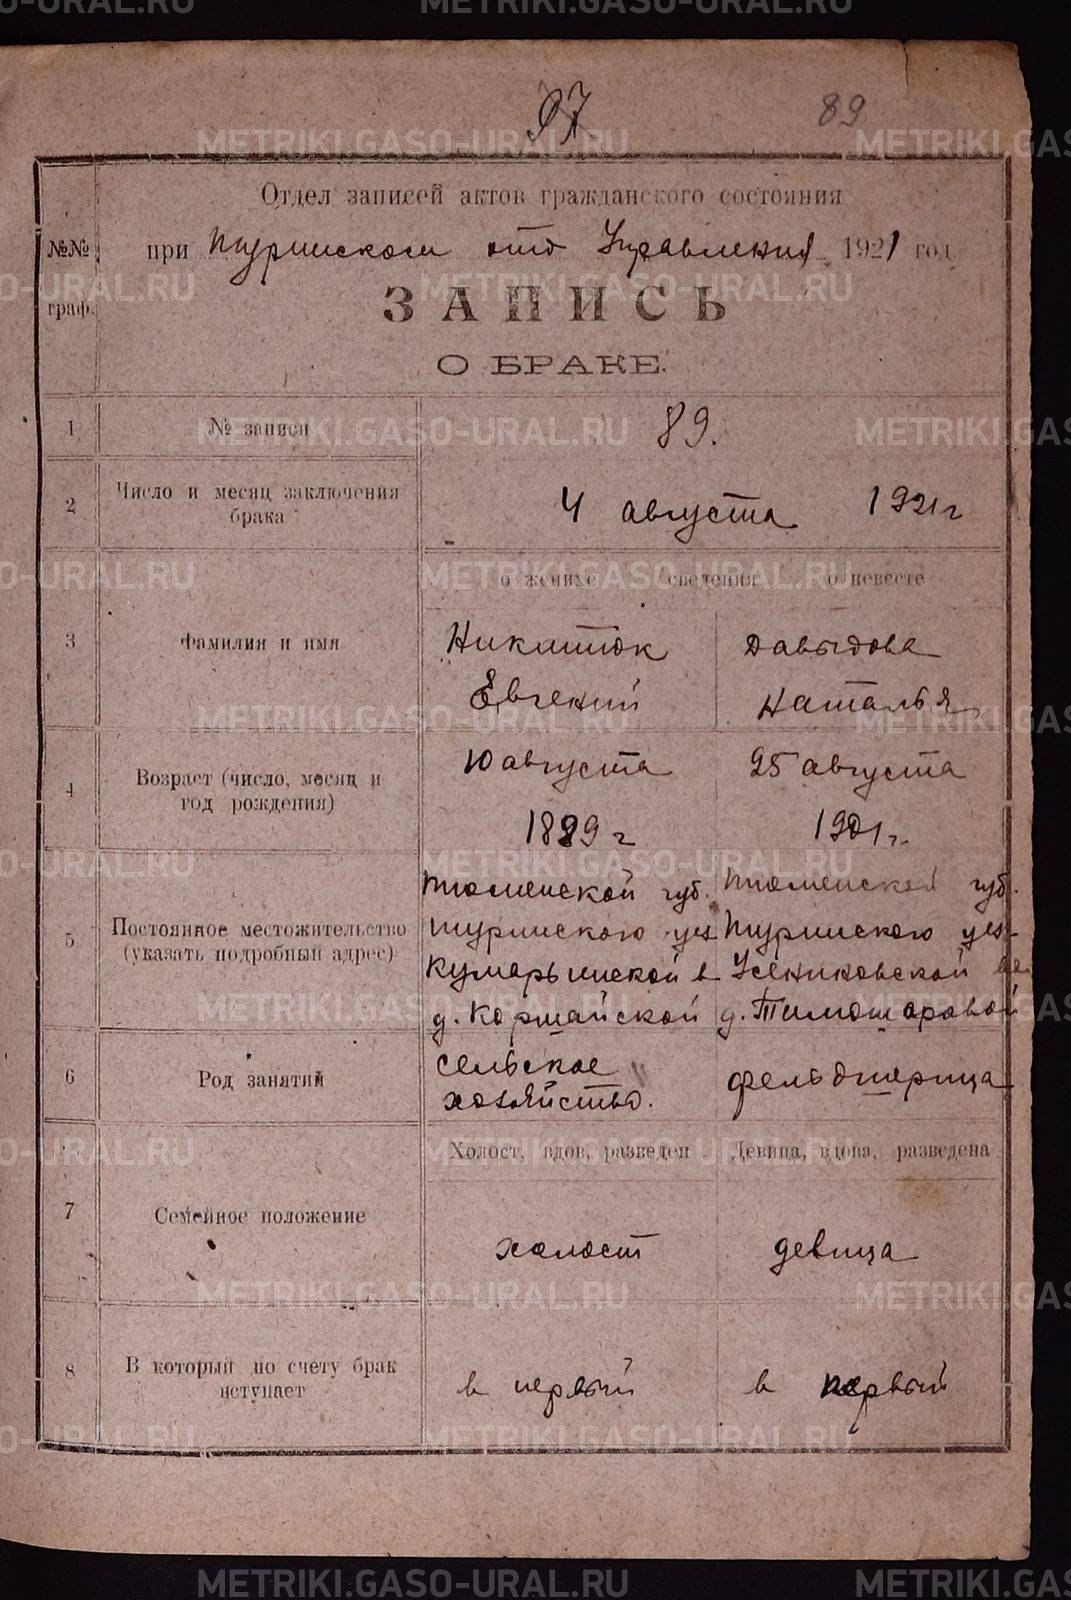 97
89
Отдел записей актов гражданского состояния
№№ граф.
при Туринском отд Управления 1921 год
ЗАПИСЬ
О БРАКЕ.
1 № записи 89.
2 Число и месяц заключения брака 4 августа 1921г
о женихе сведения о невесте
3 Фамилия и имя
Никитюк Давыдова
Евгений Наталья
4 Возраст (число, месяц и год рождения)
10 августа 25 августа
1889 г 1901 г.
5 Постоянное местожительство (указать подробный адрес)
Тюменской губ. Тюменской губ.
Туринского уез Туринского уез
Кумарьинской в Усениковской во
д. Коршайской д. Тимошаровой
6 Род занятий
сельское фельдшерица
хозяйство.
Холост, вдов, разведен Девица, вдова, разведена
7 Семейное положение холост девица
8 В который по счету брак вступает в первый в первый
METRIKI.GASO-URAL.RU